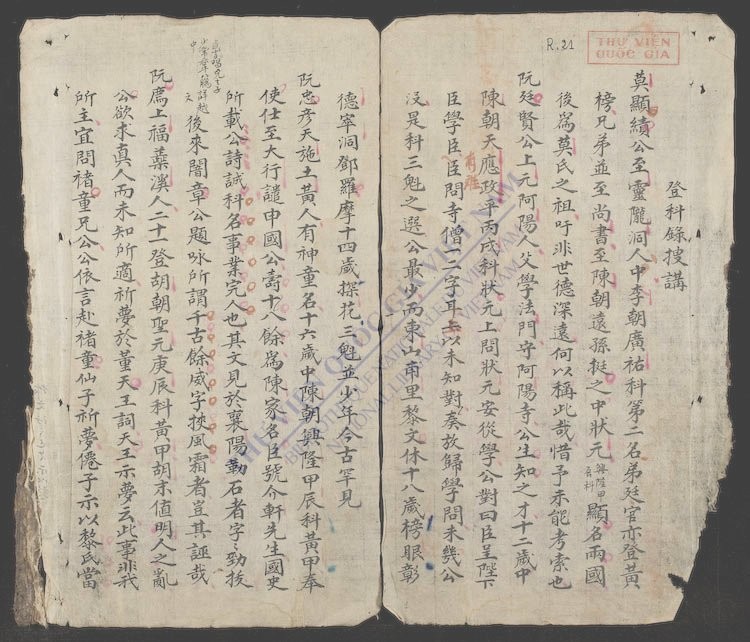 R.21
THƯ VIỆN
QUỐC GIA
登科錄搜講
莫顯績公至靈隴洞人中李朝廣祐科第二名弟廷官亦登黃
榜兄弟並至尚書至陳朝遠孫挺之中狀元顯名兩國
後爲莫氏之祖吁非世德深遠何以稱此哉惜予未能考索也
阮廷賢公上元阿陽人父學法門守阿陽寺公生知之才十二歲中
陳朝天應政平丙戌科狀元上問狀元安從學公對曰臣呈陛下
臣學臣臣問寺僧一二字耳上以未知對奏放歸學問未幾公
沒是科三魁之選公最少而東山甫里黎文休十八歲榜眼彰
德寧洞鄧羅摩十四歲探花三魁並少年今古罕見
阮忠彥天施土黃人有神童名十六歲中陳朝興隆甲辰科黃甲奉
使仕至大行譴申國公壽十八餘爲陳家名臣號介軒先生國史
所載公詩誠科名事業完人也其文見於襄陽勒石者字勁拔
後來闇章公題咏所謂千古餘威字挾風霜者豈其誣哉
阮廌上福蘂溪人二十一登胡朝聖元庚辰科黃甲胡末值明人之亂
公欲求真人而未知所適祈夢於董天王詞天王示夢云此事非我
所主宜問禇童兄公公依言赴禇童仙子祈夢僊子示以黎氏當
THƯ VIỆN QUỐC GIA VIỆT NAM
NATIONAL LIBRARY